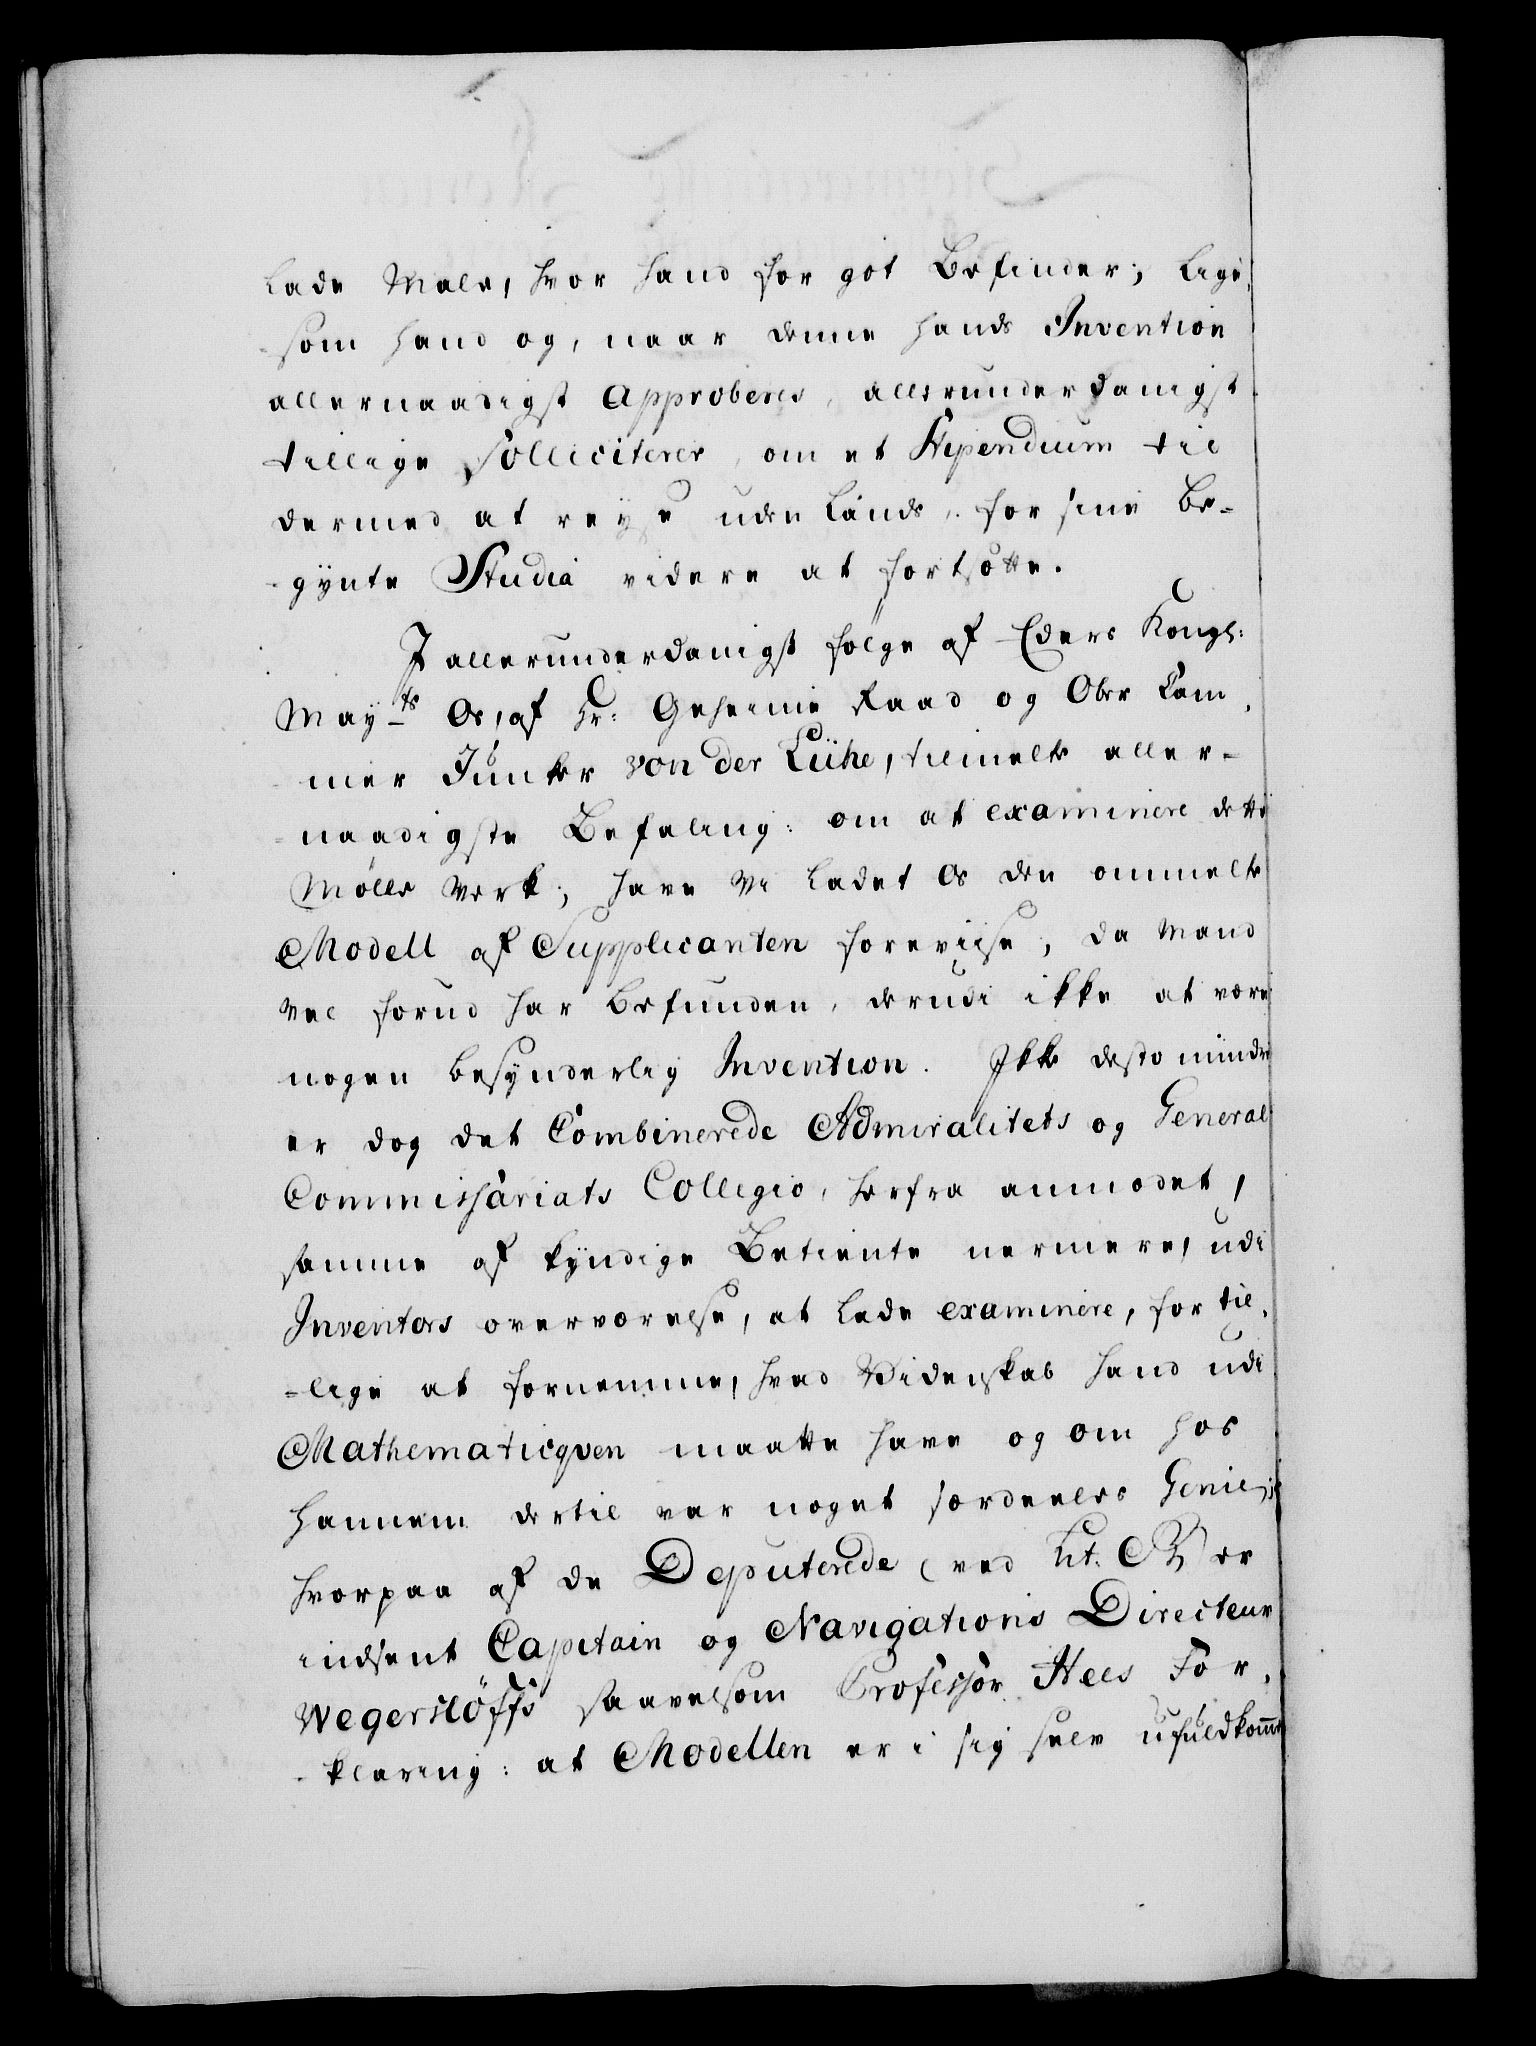 lade Male, hvor hand for got befinder; lige¬
-som hand og, naar denne hands Invention
allernaadigst approberes, allerunderdanigst
tillige solliciterer, om et Stipendium til
dermed at reyse uden lands, for sine be-
-gÿnte Studia videre at fortsøtte.
I allerunderdanigst følge af Eders Kongl:
Mayts Os, af Hr: Geheime Raad og Ober Cam¬
mer Junker von der Lühe, tilmelte aller-
-naadigste Befaling: om at examinere dette
Mølle Verk; have Vi ladet Os den ommelte
Modell af Supplicanten foreviise; da mand
vel forud har befunden, derudi ikke at være
nogen besÿnderlig Invention. Ikke desto mindre
er dog det Combinerede Admiralitets og General
Commissariats Collegio, herfra anmodet,
samme af kÿndige Betiente nermere, udi
Inventors overværelse, at lade examinere, for til¬
-lige at fornemme, hvad Videnskab hand udi
Mathematicqven maatte have og om hos
hannem dertil var noget særdeeles Genie;
hvorpaa af de Deputerede (ved Lit. B) er
indsent Capitain og Navigations Directeur
Wegerslöffs saavelsom Professor Hees For¬
-klaring: at Modellen er i sig selv ufuldkomm